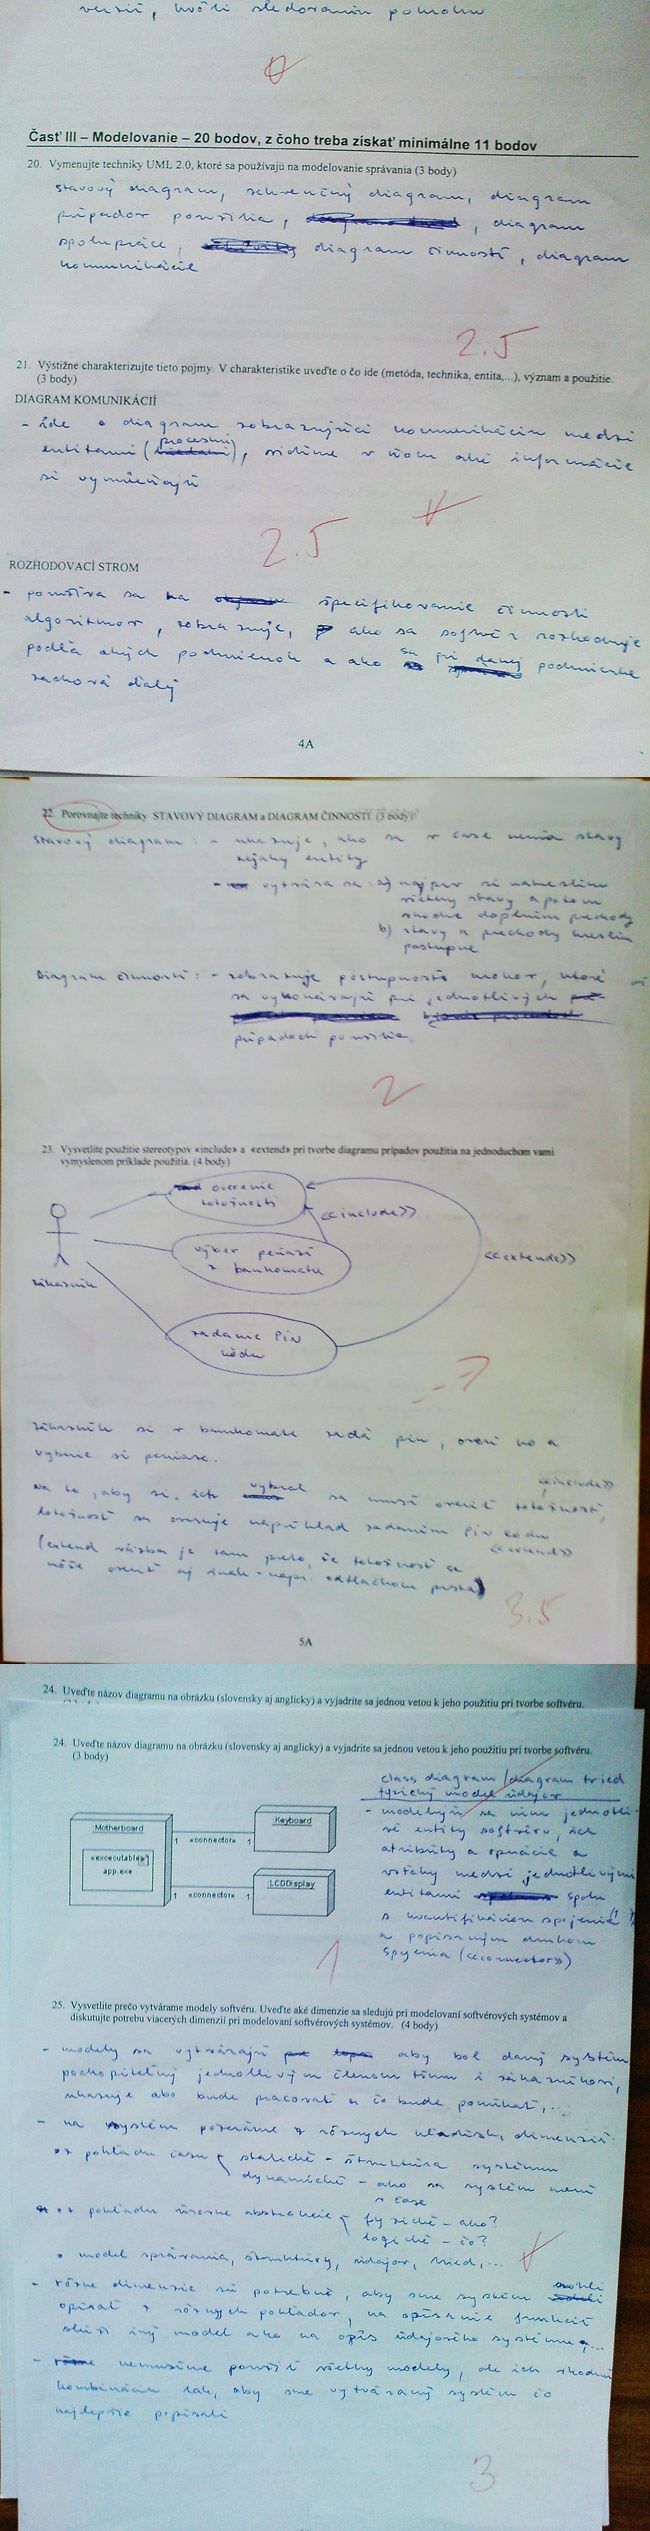 verzií, kvôli sledovaniu pokroku
Časť III – Modelovanie – 20 bodov, z čoho treba získať minimálne 11 bodov
20. Vymenujte techniky UML 2.0, ktoré sa používajú na modelovanie správania (3 body)
stavový diagram, sekvenčný diagram, diagram
prípadov použitia, , diagram
spolupráce, diagram činností, diagram
komunikácie
2.5
21. Výstižne charakterizujte tieto pojmy. V charakteristike uveďte o čo ide (metóda, technika, entita,...), význam a použitie.
(3 body)
DIAGRAM KOMUNIKÁCIÍ
- ide o diagram zobrazujúci komunikáciu medzi
procesmi
entitami ( ), vidíme v ňom aké informácie
si vymieňajú
2.5
ROZHODOVACÍ STROM
- používa sa na špecifikovanie činnosti
algoritmov, zobrazuje, ako sa softvér rozhoduje
podľa akých podmienok a ako sa pri danej podmienke
zachová ďalej
4A
22. Porovnajte techniky STAVOVÝ DIAGRAM a DIAGRAM ČINNOSTÍ. (3 body)
Stavový diagram: - ukazuje, ako sa v čase menia stavy
nejakej entity
- vytvára sa: a) najprv si nakreslíme
všetky stavy a potom
vhodne doplníme prechody
b) stavy a prechody kreslím
postupne
Diagram činností: - zobrazuje postupnosť krokov, ktoré
sa vykonávajú pri jednotlivých
prípadoch použitia
2
23. Vysvetlite použitie stereotypov «include» a «extend» pri tvorbe diagramu prípadov použitia na jednoduchom vami
vymyslenom príklade použitia. (4 body)
overenie
totožnosti
<<include>>
výber peňazí
z bankomatu
<<extend>>
zákazník
zadanie PIN
kódu
zákazník si v bankomate zadá pin, overí ho a
vyberie si peniaze.
<<include>>
na to, aby si ich vybral sa musí overiť totožnosť,
totožnosť sa overuje napríklad zadaním PIN kódu
<<extend>>
(extend väzba je tam preto, že totožnosť sa
môže overiť aj inak - napr. odtlačkom prsta)
3.5
5A
24. Uveďte názov diagramu na obrázku (slovensky aj anglicky) a vyjadrite sa jednou vetou k jeho použitiu pri tvorbe softvéru.
24. Uveďte názov diagramu na obrázku (slovensky aj anglicky) a vyjadrite sa jednou vetou k jeho použitiu pri tvorbe softvéru.
(3 body)
class diagram / diagram tried
fyzický model údajov
- modelujú sa ním jednotli-
vé entity softvéru, ich
atribúty a operácie a
vzťahy medzi jednotlivými
entitami spolu
s kvantifikáciou spojenia (1 1)
a popísaným druhom
spojenia (<<connector>>)
:Motherboard
«executable»
app.exe
1 «connector» 1
:Keyboard
1 «connector» 1
:LCDDisplay
1
25. Vysvetlite prečo vytvárame modely softvéru. Uveďte aké dimenzie sa sledujú pri modelovaní softvérových systémov a
diskutujte potrebu viacerých dimenzií pri modelovaní softvérových systémov. (4 body)
- modely sa vytvárajú aby bol daný systém
pochopiteľný jednotlivým členom tímu i zákazníkovi,
ukazuje ako bude pracovať a čo bude ponúkať,...
- na systém pozeráme z rôznych hľadísk, dimenzií:
z pohľadu času statické - štruktúra systému
dynamické - ako sa systém mení
v čase
z pohľadu úrovne abstrakcie fyzické - ako?
logické - čo?
model správania, štruktúry, údajov, tried,...
- rôzne dimenzie sú potrebné, aby sme systém mohli
opísať z rôznych pohľadov, na opísanie funkcií
slúži iný model ako na opis údajového systému,...
- nemusíme použiť všetky modely, ale ich vhodnú
kombináciu tak, aby sme vytváraný systém čo
najlepšie popísali
3